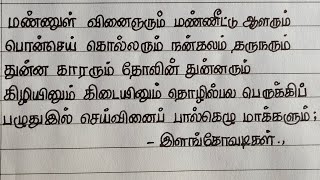 மண்ணுள் வினைஞரும் மண்ணீட்டு ஆளரும்
பொன்செய் கொல்லரும் நன்கலம் தருநரும்
துன்ன காரரும் தோலின் துன்னரும்
கிழியினும் கிடையினும் தொழில்பல பெருக்கிப்
பழுதுஇல் செய்வினைப் பால்கெழு மாக்களும் ;
- இளங்கோவடிகள் .,